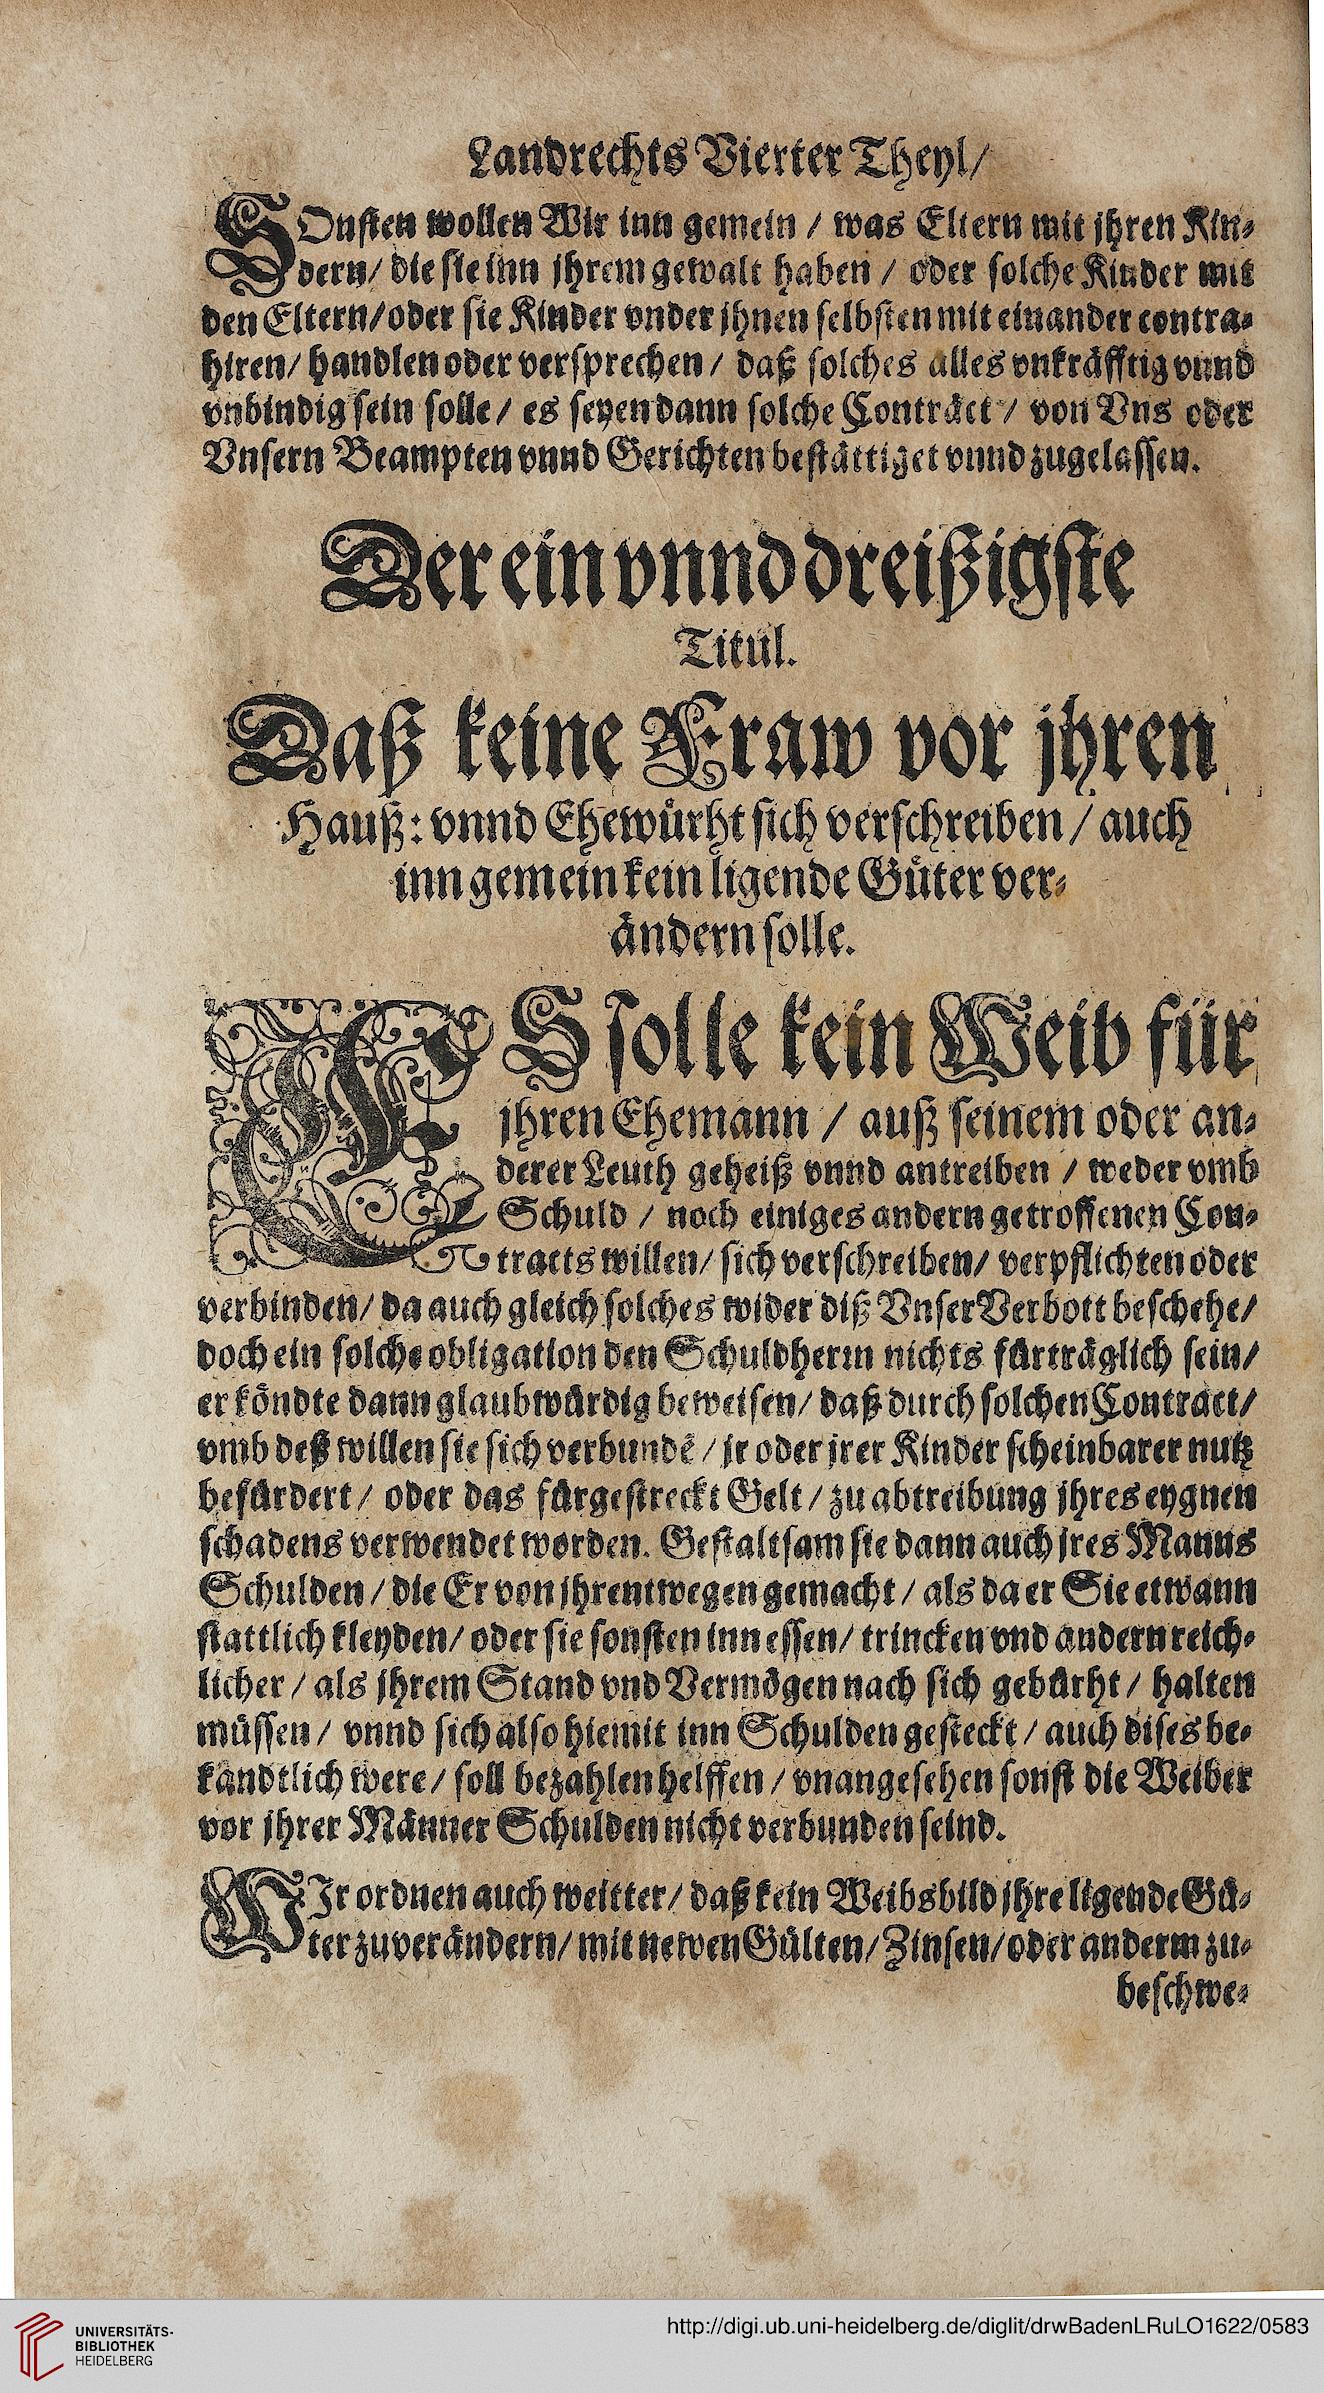 Landrechts Vierter Theyl/
SOnsten wollen Wir inn gemein / was Eltern mit jhren Kin-
dern/ die sie inn jhrem gewalt haben / oder solche Kinder mit
den Eltern/oder sie Kinder vnder jhnen selbsten mit einander contra-
hiren/ handlen oder versprechen / daß solches alles vnkräfftig vnnd
vnbindig sein solle / es seyen dann solche Conträct / von Vns oder
Vnsern Beampten vnnd Gerichten bestättiget vnnd zugelassen.
Der ein vnnd dreißigste
Titul.
Daß keine Fraw vor jhren
Hauß: vnnd Ehewürht sich verschreiben / auch
inn gemein kein ligende Güter ver-
ändern solle.
ES solle kein Weib für
jhren Ehemann / auß seinem oder an-
derer Leuth geheiß vnnd antreiben / weder vmb
Schuld / noch einiges andern getroffenen Con-
tracts willen/ sich verschreiben/ verpflichten oder
verbinden/ da auch gleich solches wider diß Vnser Verbott beschehe/
doch ein solche obligation den Schuldherrn nichts fürträglich sein/
er köndte dann glaubwürdig beweisen/ daß durch solchen Contract/
vmb deß willen sie sich verbundē / jr oder jrer Kinder scheinbarer nutz
befürdert / oder das fürgestreckt Gelt / zu abtreibung jhres eygnen
schadens verwendet worden. Gestaltsam sie dann auch jres Manns
Schulden / die Er von jhrentwegen gemacht / als da er Sie etwann
stattlich kleyden/ oder sie sonsten inn essen/ trincken vnd andern reich-
licher / als jhrem Stand vnd Vermögen nach sich gebürht / halten
müssen / vnnd sich also hiemit inn Schulden gesteckt / auch dises be-
kandtlich were / soll bezahlen helffen / vnangesehen sonst die Weiber
vor jhrer Männer Schulden nicht verbunden seind.
WIr ordnen auch weitter/ daß kein Weibsbild jhre ligende Gü-
ter zuverändern/ mit newen Gülten/ Zinsen/ oder anderm zu-
beschwe-
UNIVERSITÄTS-
BIBLIOTHEK
HEIDELBERG
http://digi.ub.uni-heidelberg.de/diglit/drwBadenLRuLO1622/0583